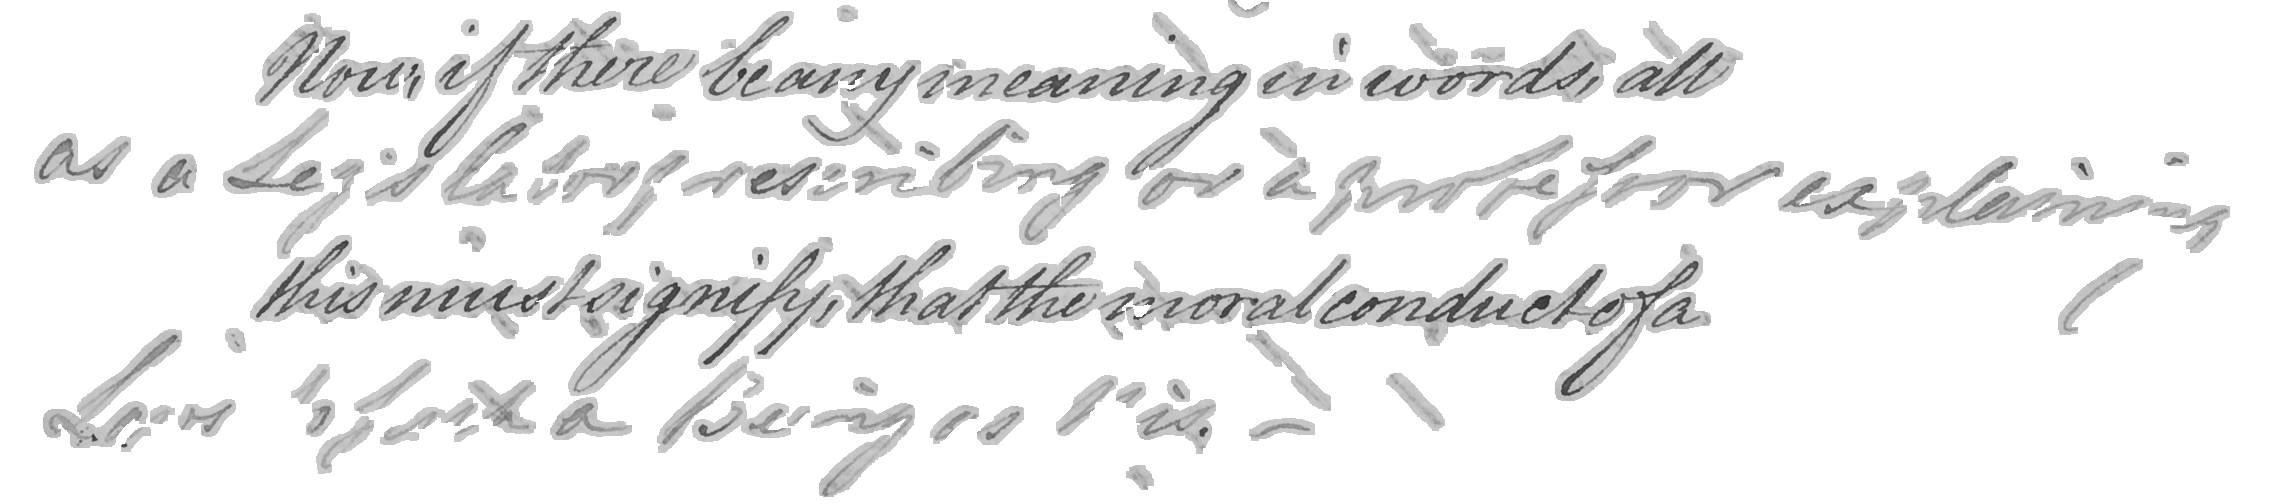 Now, if there be any meaning in words, all
as a Legislator prescribing or a professor explaining
this must signify, that the moral conduct of a
Laws of such a Being as this.